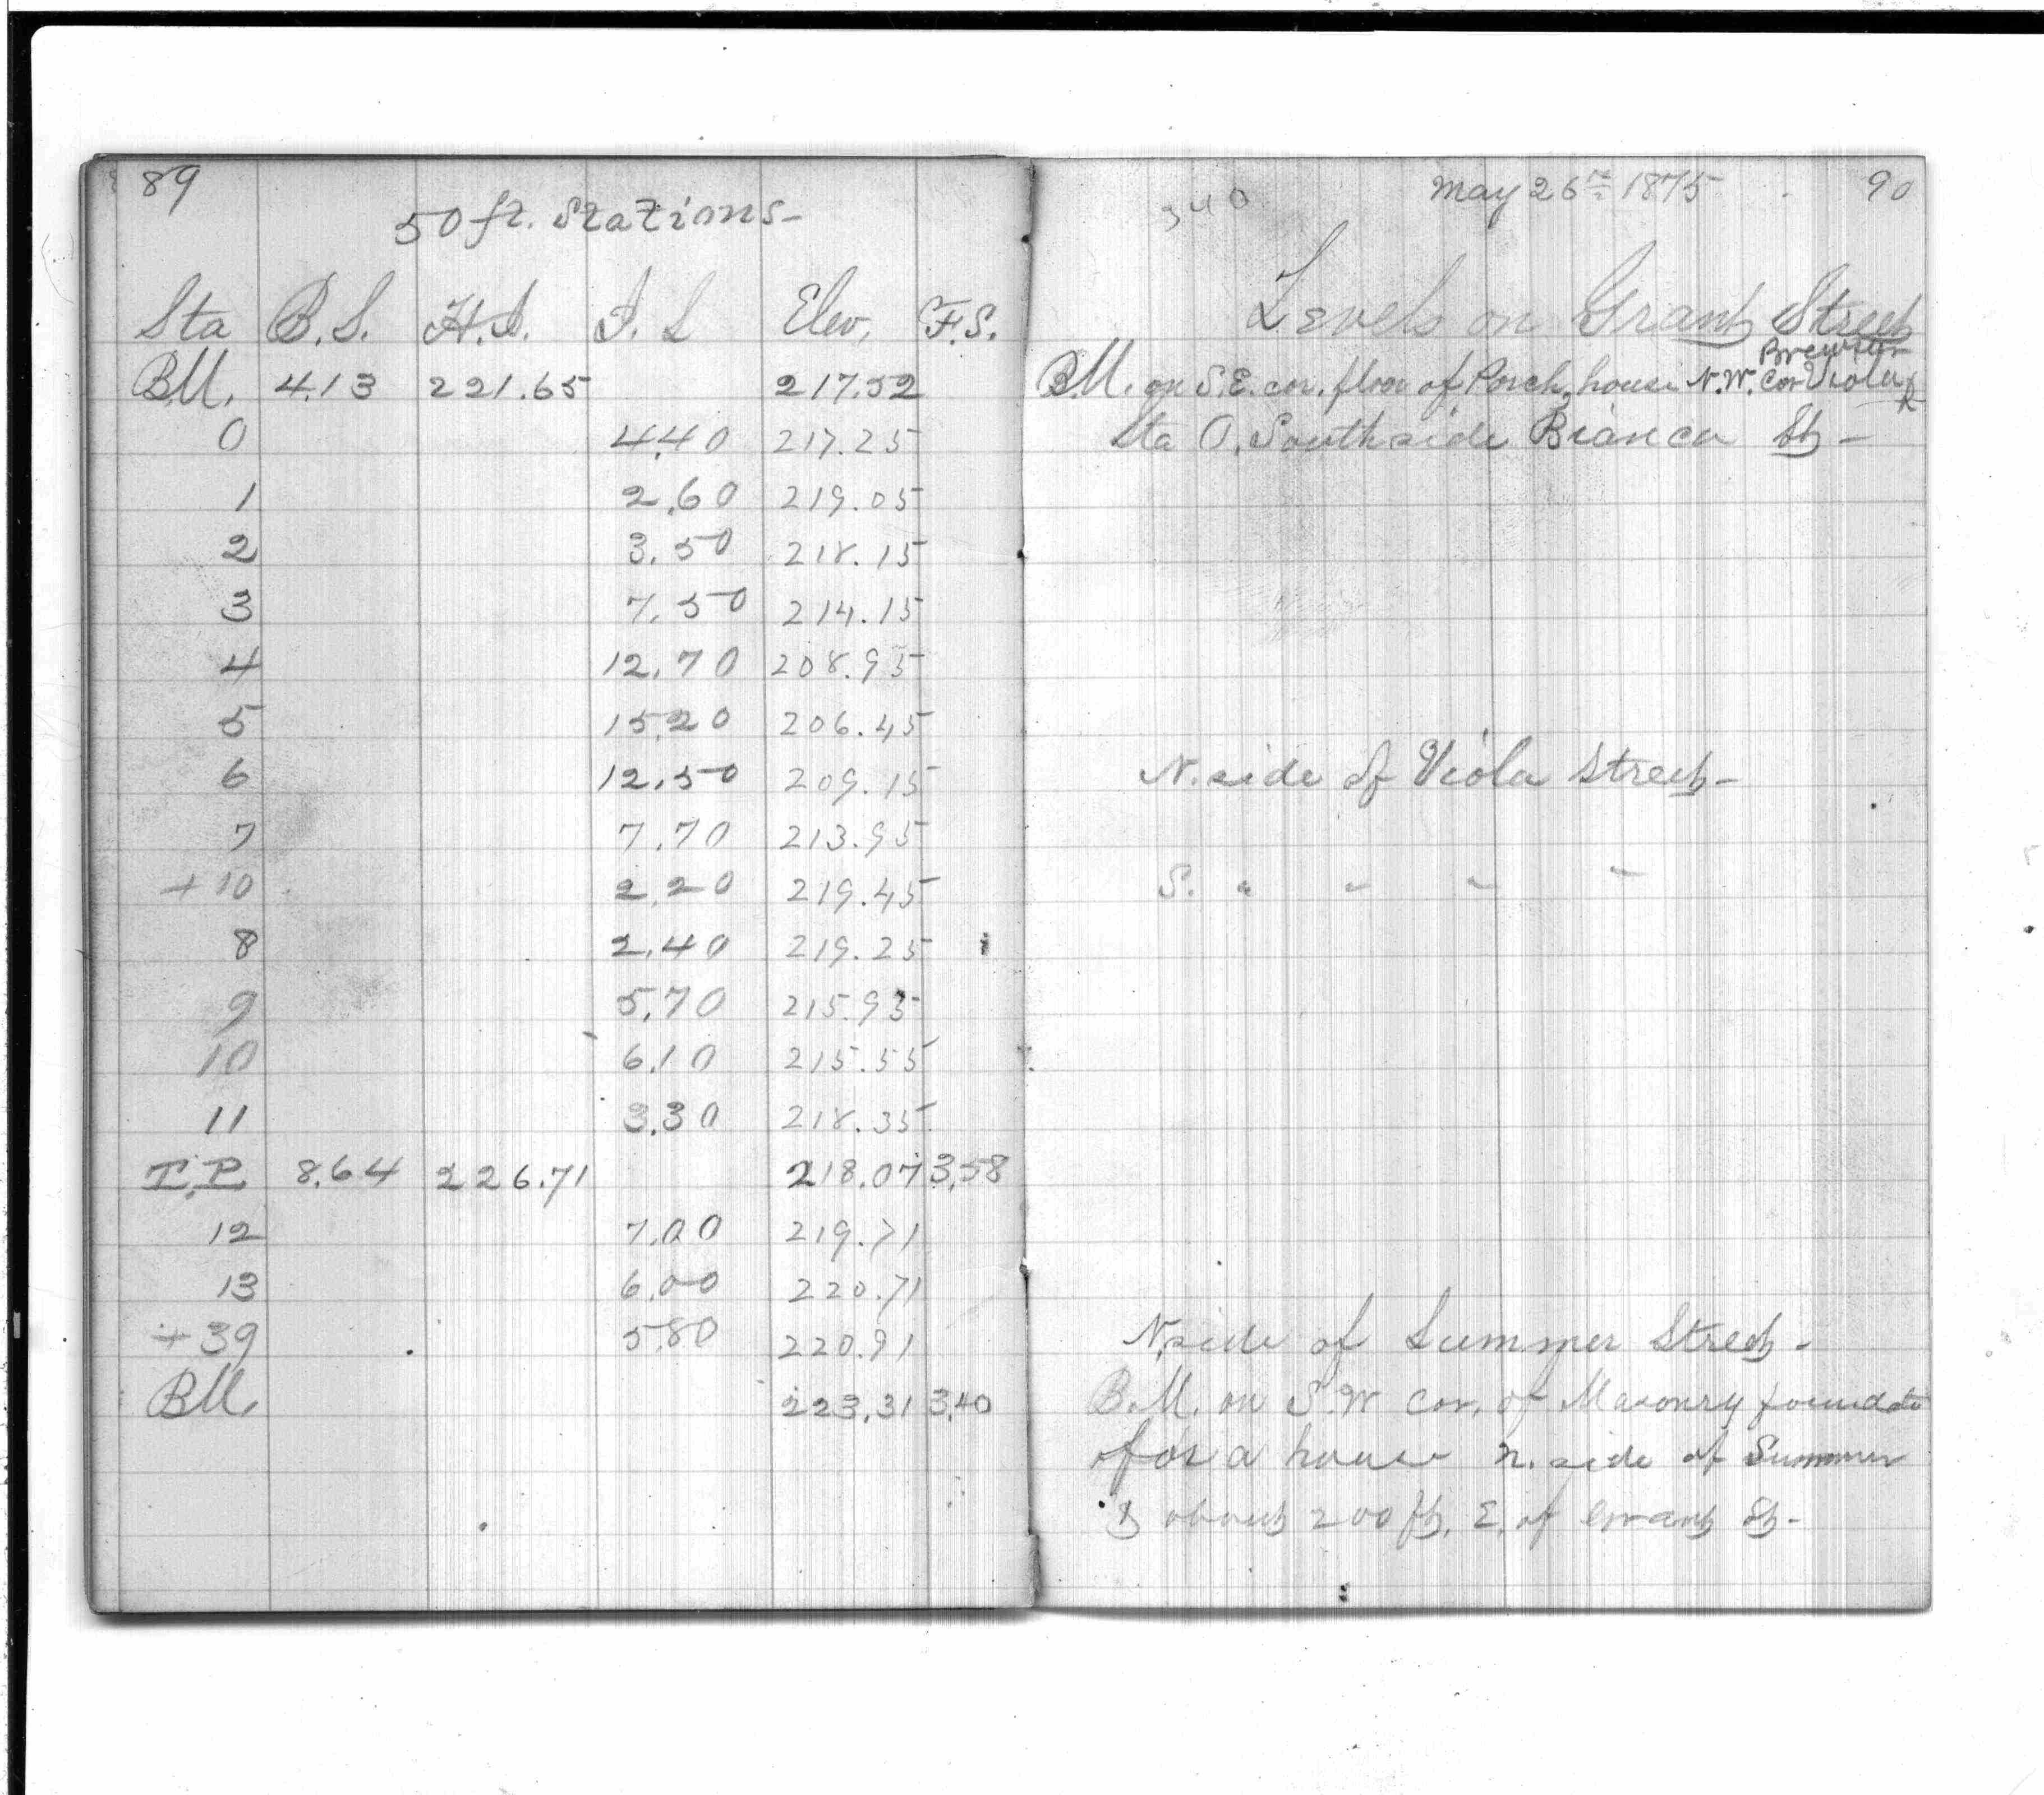 89
50 ft. Stations-
Sta B.S. H.I. I.S Elev. F.S.
B.M. 4.13 221.65 217.52
0 4.40 217.25
1 2.60 219.05
2 3.50 218.15
3 7.50 214.15
4 12.70 208.95
5 15.20 206.45
6 12.50 209.15
7 7.70 213.95
+10 2.20 219.45
8 2.40 219.25
9 5.70 215.95
10 6.10 215.55
11 3.30 218.35
T.P. 8.64 226.71 218.07 3.58
12 7.00 219.71
13 6.00 220.71
+39 5.80 220.91
B.M. 223.31 3.40
340 May 26th 1875 90
Levels on Grant Street
Brewster
B.M. on S.E. cor. floor of Porch, house N.W. Cor Viola &
Sta 0, South side Bianca St-
N. side of Viola Street-
S. " " " "
N. side of Summer Street-
B.M. on S.W cor. of Masonry foundatn
for a house n. side of Summer
St about 200 ft. E. of Grant St-